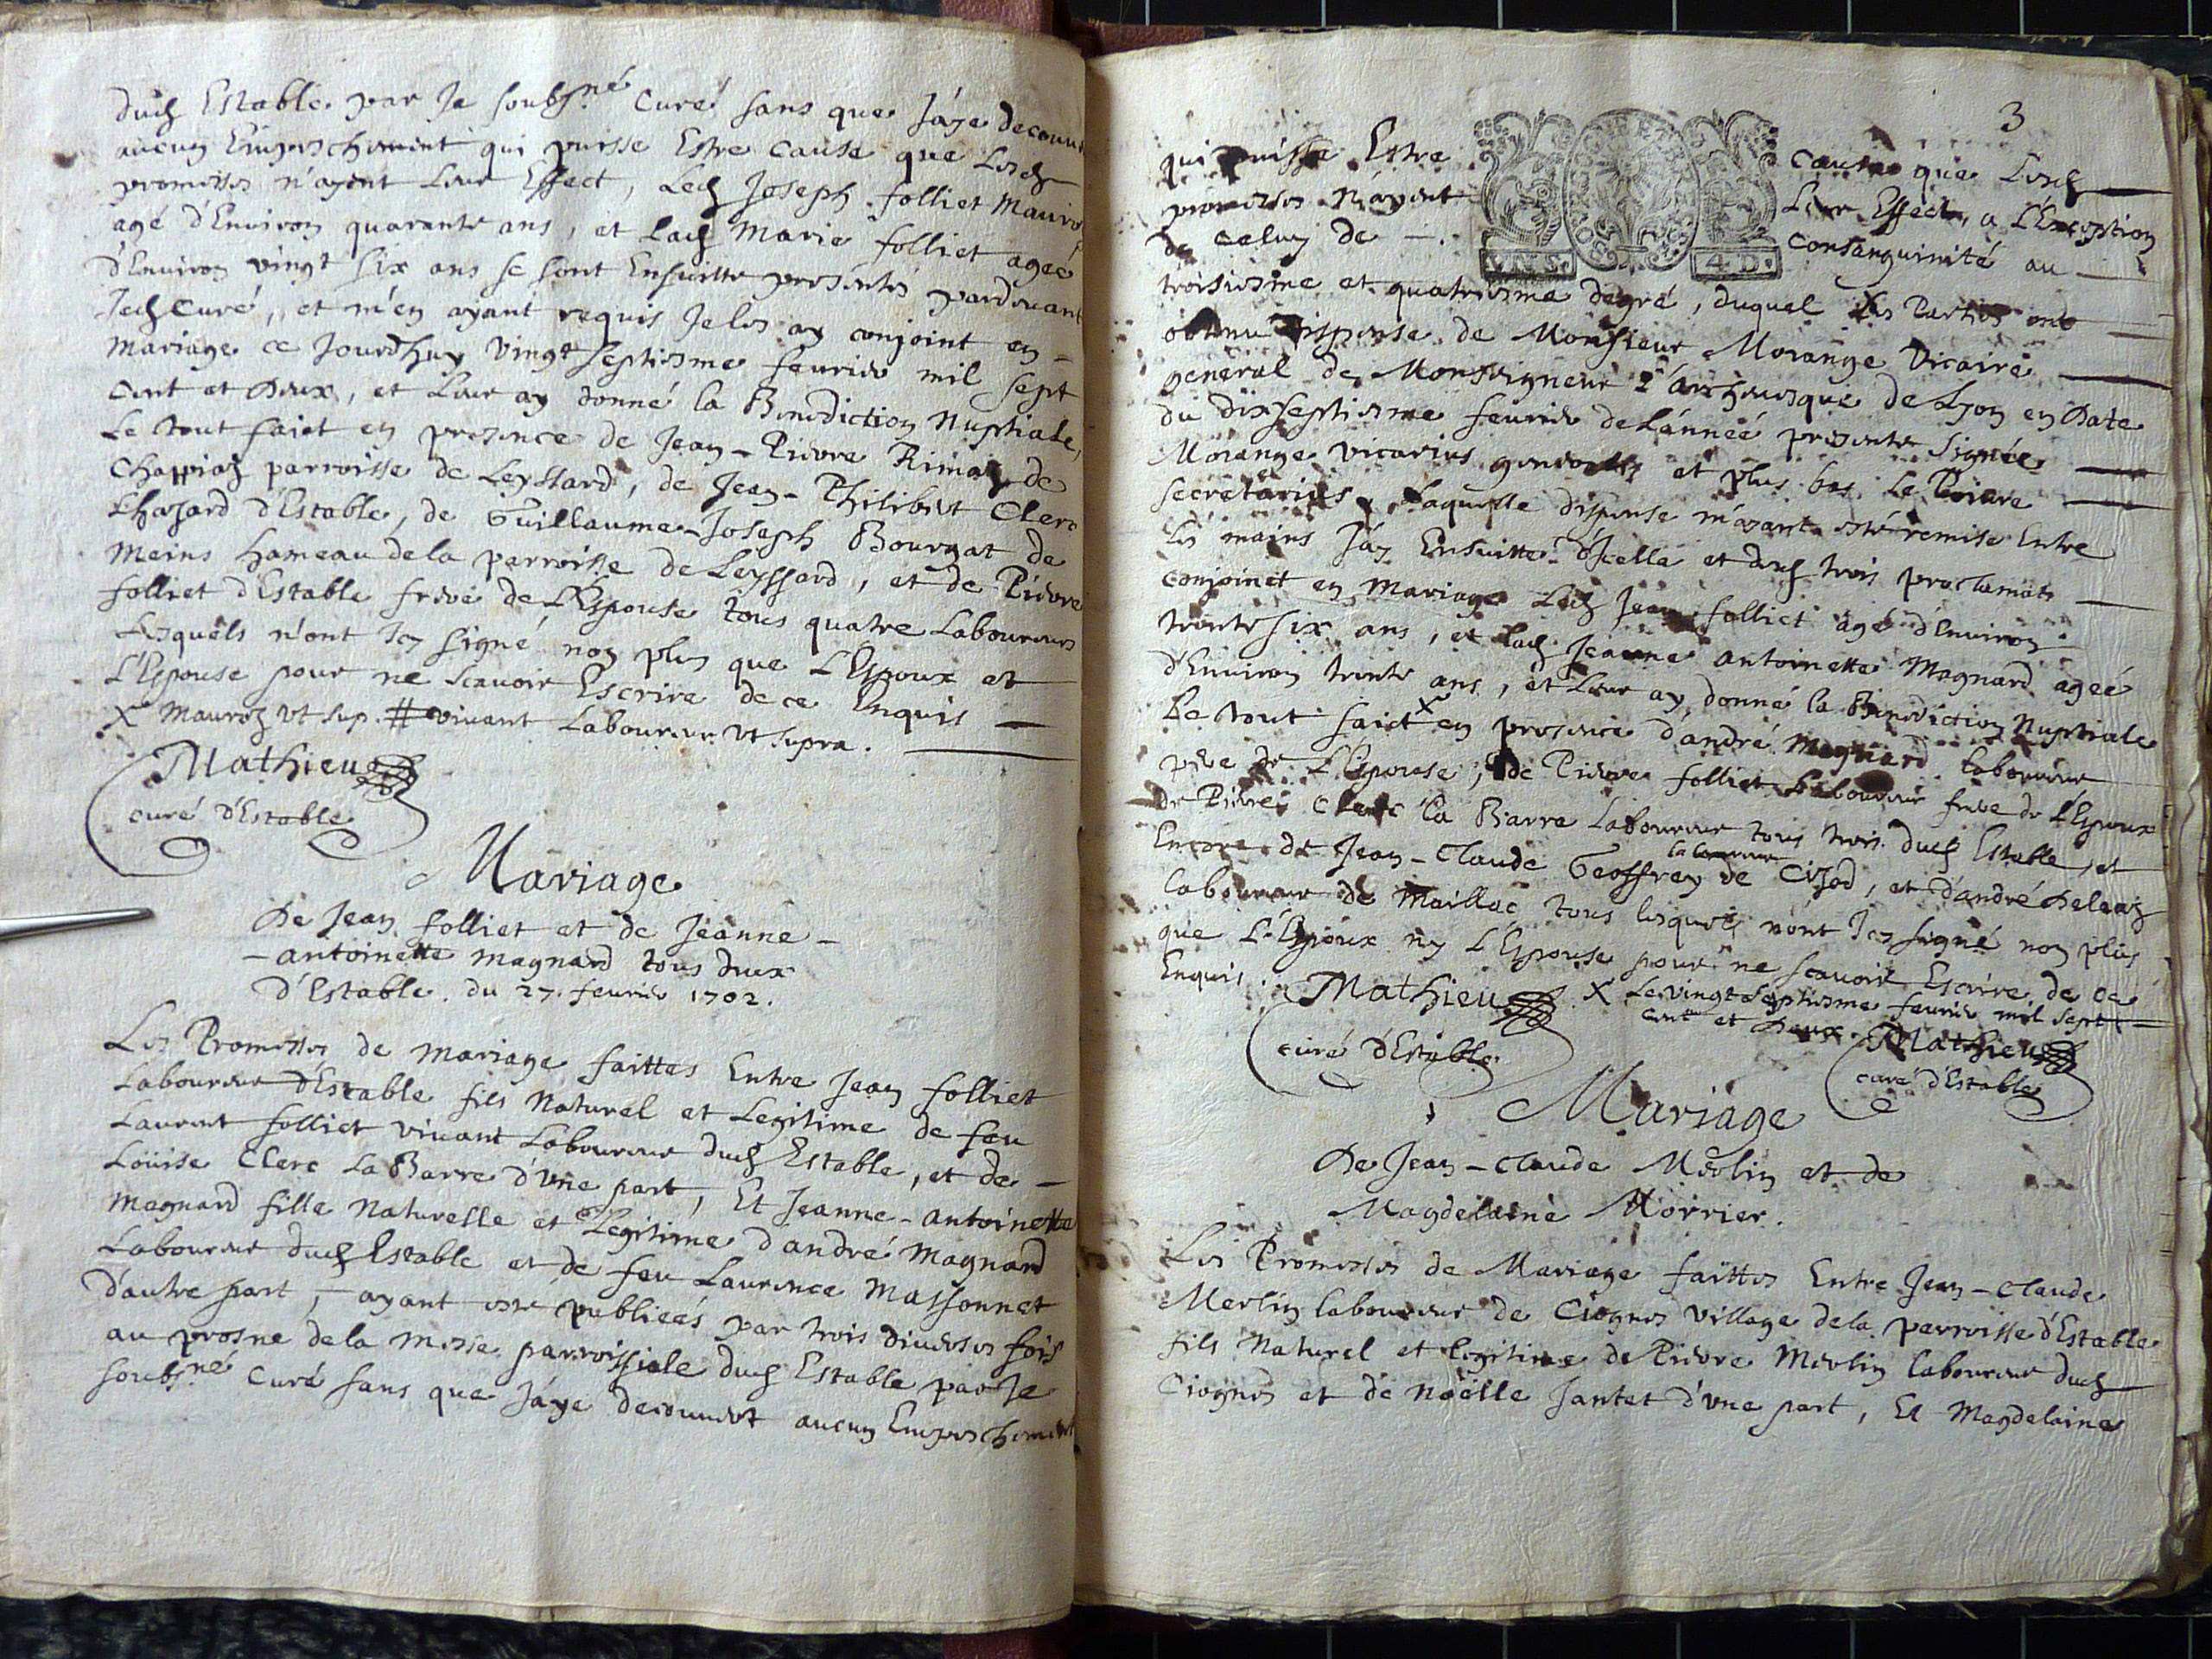 dud Estable par Je soubsné Curé sans que J'aye decouuert
aucun Empeschement qui puisse Estre cause que Lesd
promesses n'ayent Leur Effect, Led Joseph folliet Mauroz
agé d'Enuiron quarante ans, et Lad Marie folliet ageé
d'Enuiron vingt six ans se sont Ensuitte presentés pardeuant
Jed Curé, et m'en ayant requis Je les ay conjoint en -
Mariage ce Jourdhuy vingt septiesme feurier mil sept
cent et deux, et Leur ay donné la Benediction Nuptiale,
Le tout faict en presence de Jean-Pierre de
parroisse de Leyssard, de Jean-Philibert Clerc
Chazard d'Estable, de Guillaume-Joseph Bourgat de
Meins hameau de la parroisse de Leyssard, et de Pierre
folliet d'Estable frere de L'Espouse tous quatre Laboureurs
Lesquels n'ont Icy signé non plus que L'Espoux et
L'Espouse pour ne scauoir Escrire de ce Enquis
X Mauroz vt sup. # viuant Laboureur vt supra.
Mathieu
curé d'Estable
Mariage
De Jean folliet et de Jeanne -
- antoinette Magnard tous deux
d'Estable. du 27. feurier 1702.
Les Promesses de mariage faittes Entre Jean folliet
Laboureur d'Estable fils Naturel et Legitime de feu
Laurent folliet viuant Laboureur dud Estable, et de -
Loüise Clerc La Barre d'vne part, Et Jeanne-antoinette
Magnard fille Naturelle et Legitime d'andré Magnard
Laboureur dud Estable et de feu Laurence Massonnet
d'autre part, - ayant esté publieés par trois diuerses fois
au prosne de la Messe parroissiale dud Estable par Je
soubsné Curé sans que J'aye decouuert aucun Empeschement
3
qui puisse Estre cause que Lesd
promesses n'ayent Leur Effect, a L'Exception
de celuy de -. consanguinité au
4 D.
troisiesme et quatriesme degré, duquel les Parties ont
obtenu dispense de Monsieur Morange Vicaire
general de Monseigneur L'archeuesque de Lyon en date
du dix septiesme feurier de L'anneé presente signeé
Morange vicarius generalis et plus bas Le Prieure
secretarius, Laquelle dispense m'ayant esté remise Entre
les mains J'ay Ensuitte d'Icelle et desd trois proclamats
conjoinct en Mariage Led Jean folliet agé d'Enuiron
trente six ans, et Lad Jeanne antoinette Magnard ageé
d'Enuiron trente ans, et Leur ay donné la Benediction Nuptiale
Le tout faict X en presence d'andré Magnard laboureur
pere de L'Espouse, de Pierre folliet Laboureur frere de L'Espoux
de Pierre Clerc La Barre Laboureur tous trois dud Estable, et
Encore de Jean-Claude Geoffrey laboureur de Cizod, et d'andré Deleaz
laboureur de Maillac tous lesquels n'ont Icy signé non plus
que L'Espoux ny L'Espouse pour ne scauoir Escrire de ce
Enquis. Mathieu X Le vingt septiesme feurier mil sept
cent et deux. Mathieu
curé d'Estable curé d'Estable
Mariage
De Jean-Claude Merlin et de
Magdelaine Morrier.
Les Promesses de Mariage faittes Entre Jean-Claude
Merlin laboureur de Ciognes village de la parroisse d'Estable
fils Naturel et legitime de Pierre Merlin laboureur dud
Ciognes et de Noëlle Jantet d'vne part, Et Magdelaine